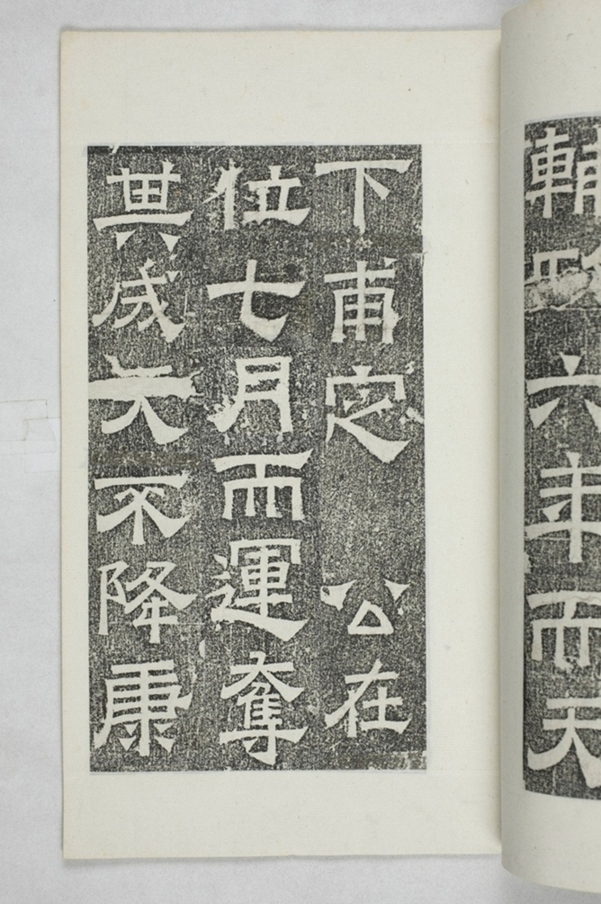 輔政六年而天
下甫定 公在
位七月而運奪
其成天不降康